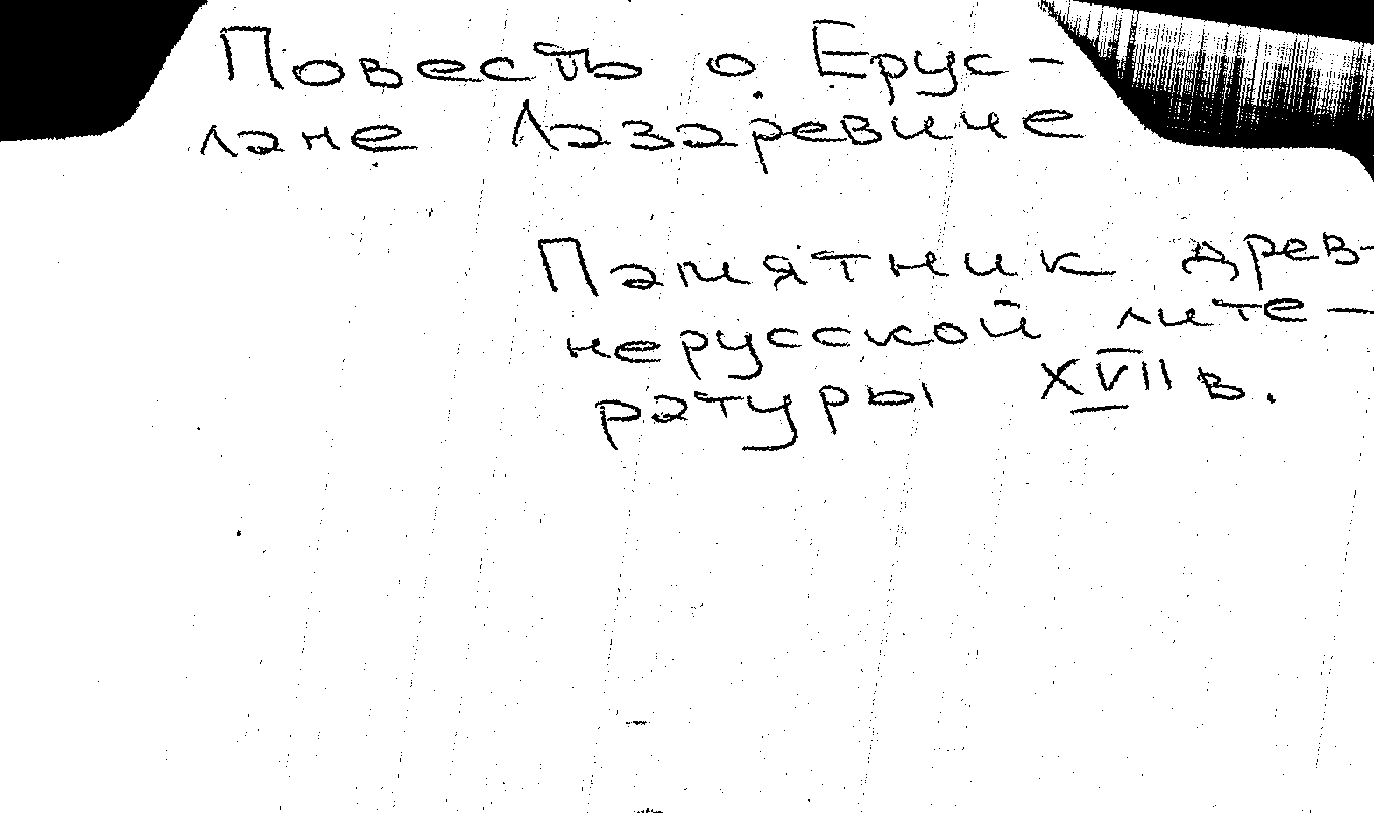 Повесть о Ерус-
лане Лазаревиче
Памятник древ-
нерусской лите-
ратуры XVII в.